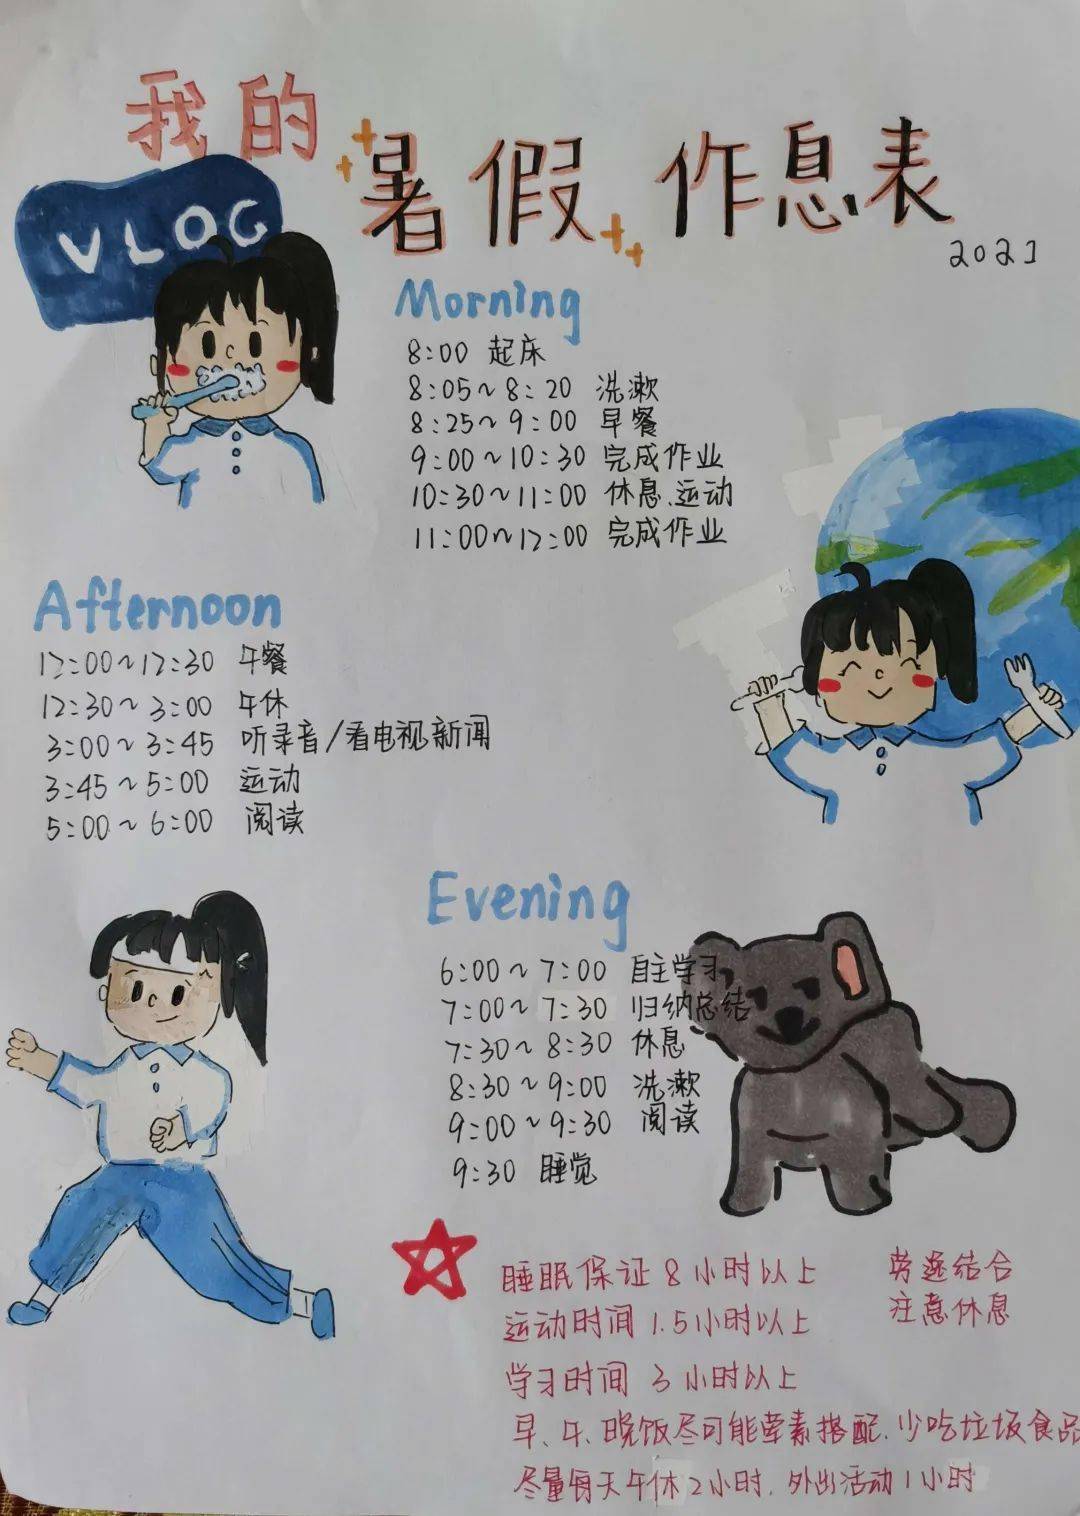 我的
暑假作息表
VLOG
2021
Morning
8:00 起床
8:05~8:20 洗漱
8:25~9:00 早餐
9:00~10:30 完成作业
10:30~11:00 休息、运动
11:00~12:00 完成作业
Afternoon
12:00~12:30 午餐
12:30~3:00 午休
3:00~3:45 听录音/看电视新闻
3:45~5:00 运动
5:00~6:00 阅读
Evening
6:00~7:00 自主学习
7:00~7:30 归纳总结
7:30~8:30 休息
8:30~9:00 洗漱
9:00~9:30 阅读
9:30 睡觉
睡眠保证8小时以上
运动时间1.5小时以上
学习时间 3小时以上
劳逸结合
注意休息
早、午、晚饭尽可能荤素搭配、少吃垃圾食品
尽量每天午休2小时，外出活动1小时